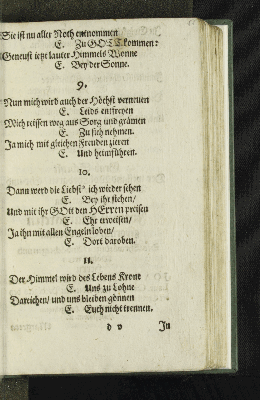 Sie ist nu aller Noth entnommen
E. Zu GOTT kommen:
Geneust ietzt lauter Himmels Wonne
E. Bey der Sonne.
9.
Nun mich wird auch der Höchst verneuen
E. Leids entfreyen
Mich reissen weg aus Sorg und grämen
E. Zu sich nehmen.
Ja mich mit gleichen freuden zieren
E. Und heimführen.
10.
Dann werd die Liebst' ich wieder sehen
E. Bey ihr stehen/
Und mit ihr GOtt den HErren preisen
E. Ehr erweisen/
Ja ihn mit allen Engeln loben/
E. Dort daroben.
11.
Der Himmel wird des Lebens Krone
E. Uns zu Lohne
Dareichen/ und uns bleiben gönnen
E. Euch nicht trennen.
d v In